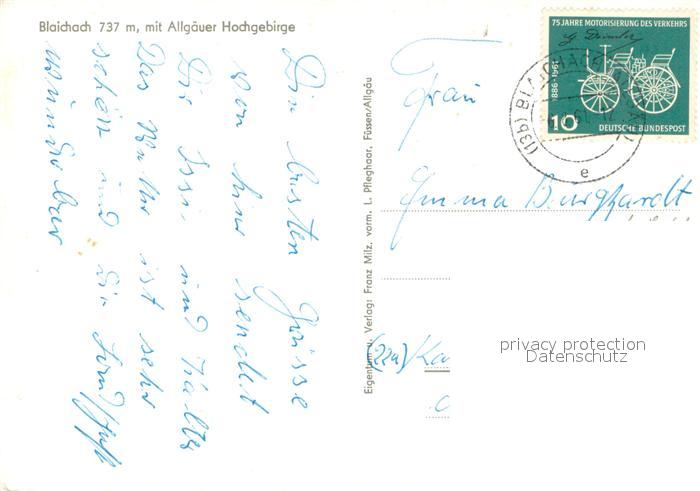 Blaichach 737 m, mit Allgäuer Hochgebirge
Die besten Grüsse
von hier sendet
Dir Issi und
Das Wetter ist sehr
schön und die Landschaft
wunderbar
Eigentum u. Verlag: Franz Milz, vorm. L. Pfleghaar, Füssen/Allgäu
75 JAHRE MOTORISIERUNG DES VERKEHRS
G. Daimler
1886-1961
10
DEUTSCHE BUNDESPOST
(13b) BLAICHACH
e
Frau
Emma Burghardt
(22a) Ka
privacy protection
Datenschutz